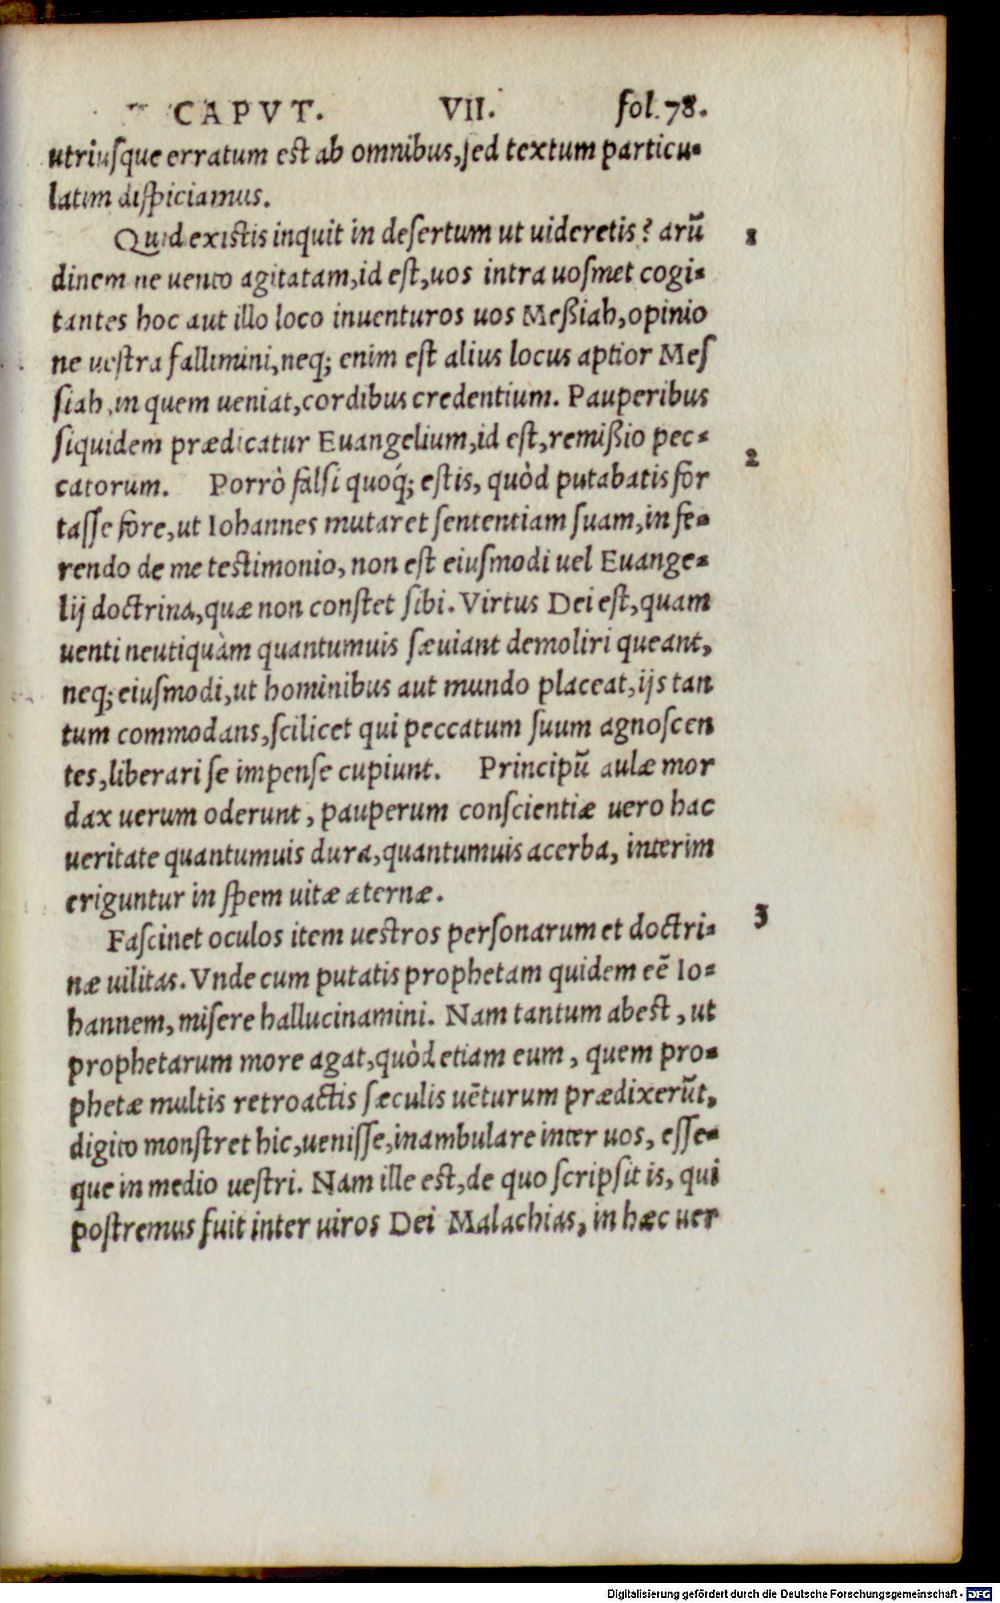 CAPVT. VII. fol. 78.
utriusque erratum est ab omnibus, sed textum particu-
latim dispiciamus.
Quid existis inquit in desertum ut uideretis? arū 1
dinem ne uento agitatam, id est, uos intra uosmet cogi-
tantes hoc aut illo loco inuenturos uos Meßiah, opinio
ne uestra fallimini, neq; enim est alius locus aptior Mes
siah, in quem ueniat, cordibus credentium. Pauperibus
siquidem prædicatur Euangelium, id est, remißio pec- 2
catorum. Porrò falsi quoq́; estis, quòd putabatis for
tasse fore, ut Iohannes mutaret sententiam suam, in fe-
rendo de me testimonio, non est eiusmodi uel Euange-
lij doctrina, quæ non constet sibi. Virtus Dei est, quam
uenti neutiquàm quantumuis sæuiant demoliri queant,
neq; eiusmodi, ut hominibus aut mundo placeat, ijs tan
tum commodans, scilicet qui peccatum suum agnoscen
tes, liberari se impense cupiunt. Principū aulæ mor
dax uerum oderunt, pauperum conscientiæ uero hac
ueritate quantumuis dura, quantumuis acerba, interim
eriguntur in spem uitæ æternæ.
Fascinet oculos item uestros personarum et doctri- 3
næ uilitas. Vnde cum putatis prophetam quidem eē Io-
hannem, misere hallucinamini. Nam tantum abest, ut
prophetarum more agat, quòd etiam eum, quem pro-
phetæ multis retroactis sæculis uēturum prædixerūt,
digito monstret hic, uenisse, inambulare inter uos, esse-
que in medio uestri. Nam ille est, de quo scripsit is, qui
postremus fuit inter uiros Dei Malachias, in hæc uer
Digitalisierung gefördert durch die Deutsche Forschungsgemeinschaft - DFG